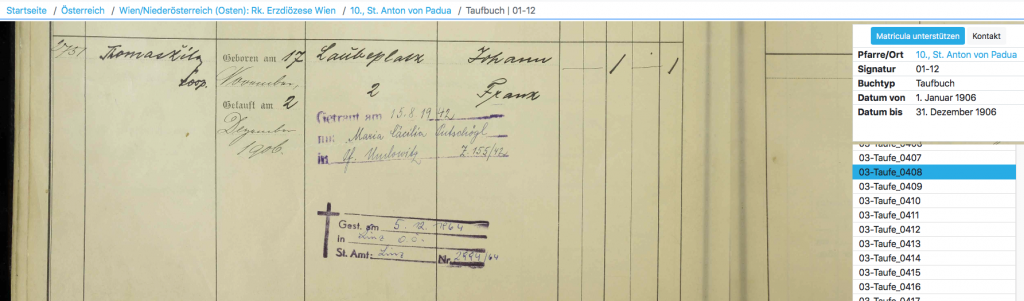 Startseite / Österreich / Wien/Niederösterreich (Osten): Rk. Erzdiözese Wien / 10., St. Anton von Padua / Taufbuch | 01-12
Matricula unterstützen Kontakt
Pfarre/Ort 10., St. Anton von Padua
Signatur 01-12
Buchtyp Taufbuch
Datum von 1. Januar 1906
Datum bis 31. Dezember 1906
03-Taufe_0406
03-Taufe_0407
03-Taufe_0408
03-Taufe_0409
03-Taufe_0410
03-Taufe_0411
03-Taufe_0412
03-Taufe_0413
03-Taufe_0414
03-Taufe_0415
03-Taufe_0416
03-Taufe_0417
2751
Geboren am 17
November,
Getauft am 2
Dezember
1906.
Laubeplatz
2
Johann
Franz
1 1
Getraut am 15.8.1942
mit Maria Cäcilia
in Pf. Z. 155/42
Gest. am 5. 12. 1964
in Linz O.Ö.
St. Amt: Linz Nr. 2994/64